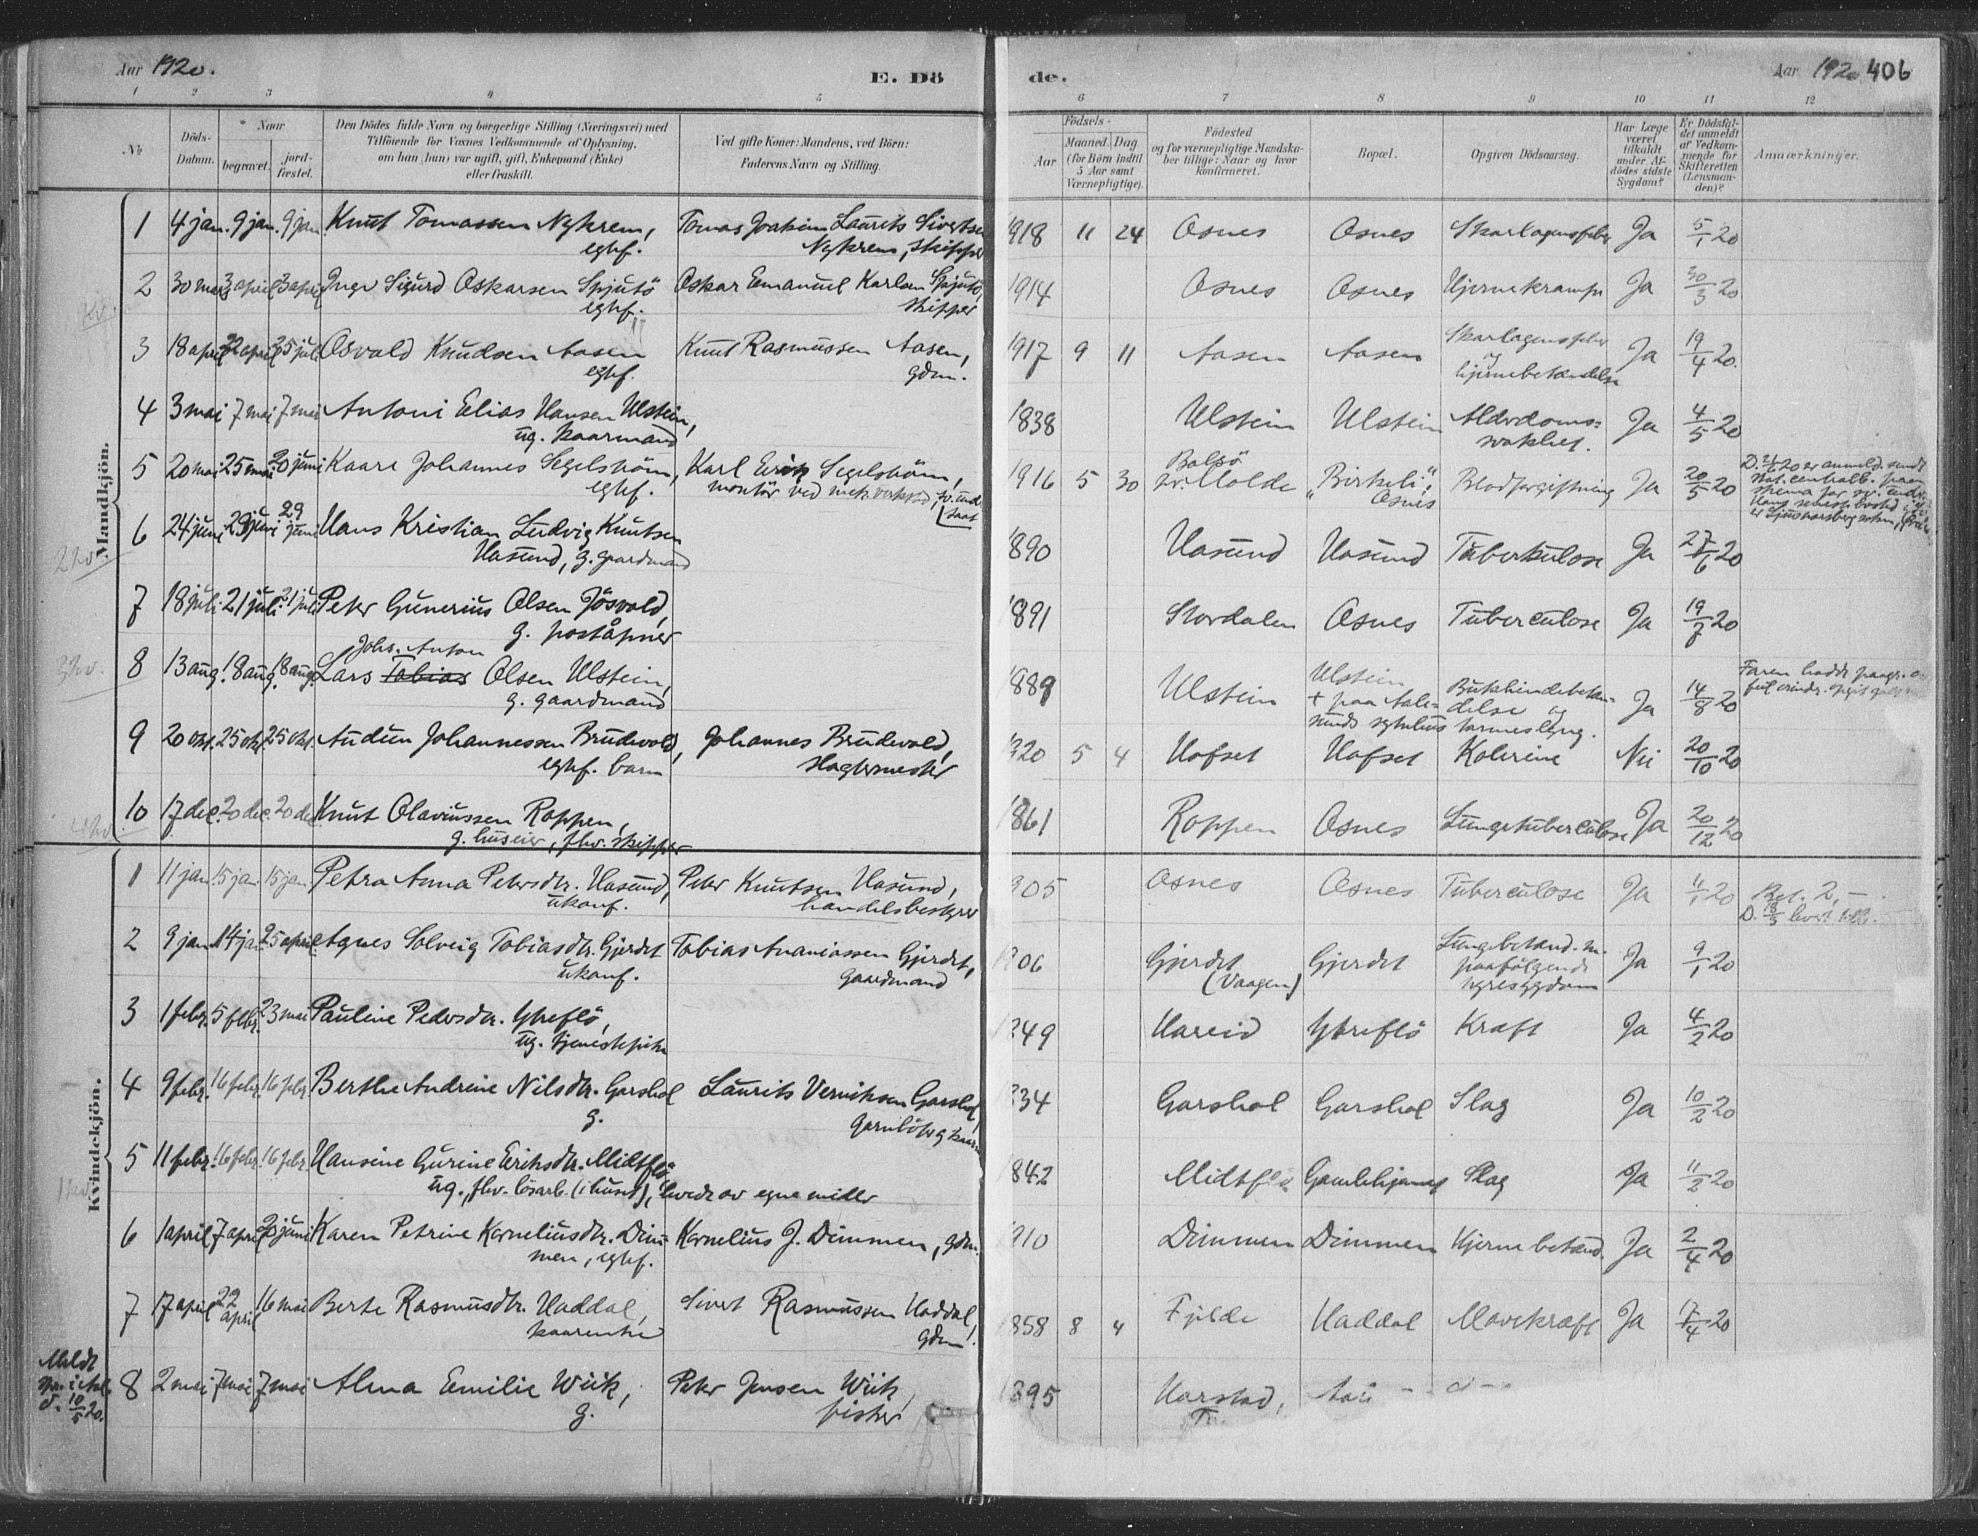 Aar 1920.
E. Dö
de.
Aar 1920
406
1 2 3 4 5
6 7 8 9 10 11 12
No
Döds-
Datum.
Naar
begravet.
jord-
fæstet.
Den Dödes fulde Navn og borgerlige Stilling (Næringsvei) med
Tilföiende for Voxnes Vedkommende af Oplysning,
om han (hun) var ugift, gift, Enkemand (Enke)
eller fraskilt.
Ved gifte Koner: Mandens, ved Börn:
Faderens Navn og Stilling.
Födsels-
Aar
Maaned. Dag
(for Börn indtil
5 Aar samt
Værnepligtige).
Födested
og for værnepligtige Mandska-
ber tillige: Naar og hvor
konfirmeret.
Bopæl.
Opgiven Dödsaarsag.
Har Læge
været
tilkaldt
under Af-
dödes sidste
Sygdom?
Er Dödsfal-
det anmeldt
af Vedkom-
mende for
Skifteretten
(Lensman-
den)?
Anmærkninger.
Mandkjön.
1 4 jan. 9 jan. 9 jan. Knut Tomassen Nykrem, Tomas Joakim Laurits Sivertsen 1918 11 24 Osnes Osnes Skarlagensfeber Ja 5/1 20
egtef. Nykrem, skipper
2 30 mars 3 april 3 april Inge Sigurd Oskarsen Spjutö Oskar Emanuel Karlsen Spjutö, 1914 Osnes Osnes Hjernekrampe Ja 30/3 20
egtef. skipper
3 18 april 22 april 25 juli Osvald Knudsen Aasen Knut Rasmussen Aasen, 1917 9 11 Aasen Aasen Skarlagensfeber Ja 19/4 20.
egtef. gdm. og
hjernebetændelse
4 3 mai 7 mai 7 mai Antoni Elias Hansen Ulstein, 1838 Ulstein Ulstein Alderdoms- Ja 4/5 20
ug. kaarmand svakhet.
5 20 mai 25 mai 20 juni Kaare Johannes Segelström, Karl Erik Segelström, 1916 5 30 Bolsö pr. Molde "Birkeli", Osnes Blodforgiftning Ja 20/5 20
egtef. montör ved mek. verksted, sv. undersaat
6 24 juni 29 juni 29 juni Hans Kristian Ludvig Knutsen 1890 Hasund Hasund Tuberkulose Ja 27/6 20
Hasund, g. gaardmand
7 18 juli 21 juli 21 juli Peter Gunerius Olsen Jösvold, 1891 Stordalen Osnes Tuberculose Ja 19/7 20
g. poståpner
Johs. Anton
8 13 aug. 18 aug. 18 aug. Lars Tobias Olsen Ulstein, 1889 Ulstein Ulstein Bukhindebetæn- Ja 14/8 20
g. gaardmand + paa Aale- delse og
sunds sykehus tarmeslyng.
9 20 okt. 25 okt. 25 okt. Audun Johannessen Brudevold, Johannes Brudevold, 1920 5 4 Hofset Hofset Kolerine Nei 20/10 20
egtef. barn slagtermester
10 17 dec. 20 dec. 20 dec. Knut Olaviussen Roppen, 1861 Roppen Osnes Lungetuberculose Ja 20/12 20
g. huseier, fhv. skipper
Kvindekjön.
1 11 jan. 15 jan. 15 jan. Petra Anna Petersdtr. Hasund, Peter Knutsen Hasund, 1905 Osnes Osnes Tuberculose Ja 11/1 20 Bet. 2,-
ukonf. handelsbestyrer
2 9 jan. 14 jan. 25 april Agnes Solveig Tobiasdtr. Gjerdet Tobias Ananiassen Gjerdet, 1906 Gjerdet Gjerdet Lungebetænd. m. Ja 9/1 20
ukonf. gaardmand (Vaagen) paafölgende
nyresygdom
3 1 febr. 5 febr. 23 mai Pauline Pedersdtr. Ytreflö, 1849 Hareid Ytreflö Kræft Ja 4/2 20
ug. tjenestepike
4 9 febr. 16 febr. 16 febr. Berthe Andrine Nilsdtr. Garshol Laurits Verniksen Garshol, 1834 Garshol Garshol Slag Ja 10/2 20
g.
5 11 febr. 16 febr. 16 febr. Hansine Gurine Eriksdtr. Midtflö 1842 Midtflö Gamlehjemmet Slag Ja 11/2 20
ug., fhv. lösarb. (i huset), levede av egne midler
6 1 april 7 april 20 juni Karen Petrine Korneliusdtr. Dim- Kornelius J. Dimmen, gdm. 1910 Dimmen Dimmen Hjernebetænd. Ja 2/4 20
men, egtef.
7 17 april 22 april 16 mai Berte Rasmusdtr. Haddal, Sivert Rasmussen Haddal, 1858 8 4 Fjelde Haddal Mavekræft Ja 17/4 20
kaarenke gdm.
Meldt
d. 10/5 20.
8 2 mai 7 mai 7 mai Alma Emilie Wiik, Peter Jensen Wiik, 1895 Harstad,
g. fisker